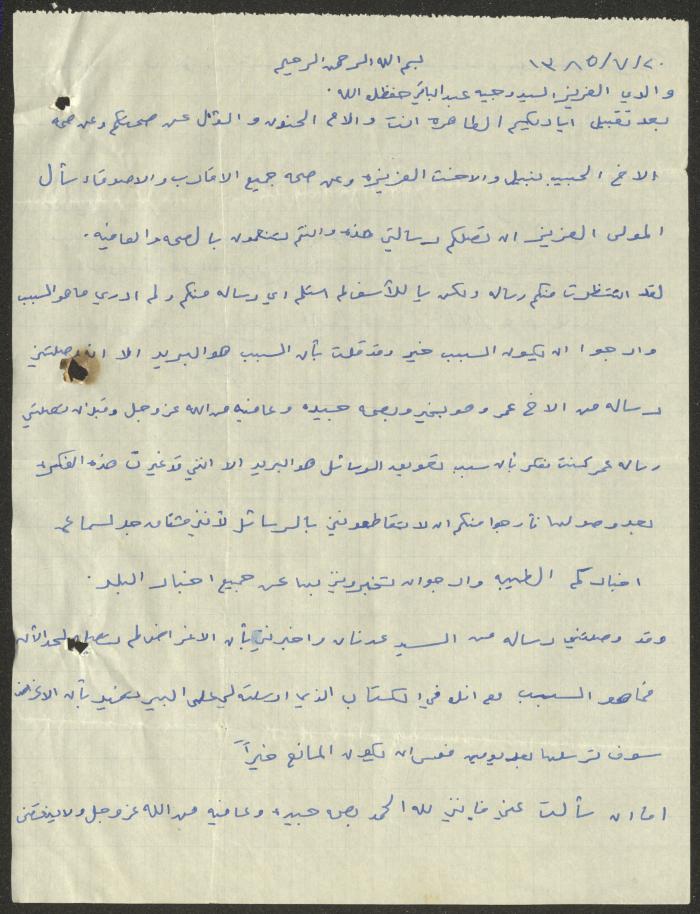 بسم الله الرحمن الرحيم ١٣٨٥/٧/٢٠
والدي العزيز السيد وجيه عبد الباقي حفظك الله.
بعد تقبيل اياديكم الطاهره انت والام الحنون والسؤال عن صحتكم وعن صحة
الاخ الحبيب نبيل والاخت العزيزه وعن صحة جميع الاقارب والاصدقاء سأل
المولى العزيز ان تصلكم رسالتي هذه وانتم تتنعمون بالصحه والعافيه.
لقد انتظرت منكم رساله ولكن يا للأسف لم استلم اي رساله منكم ولم ادري ما هو السبب
وارجوا ان يكون السبب خير وقد قلت بأن السبب هو البريد الا انه وصلتني
رساله من الاخ عمر وهو بخير وبصحه جيده وعافيه من الله عز وجل وقبل ان تصلني
رسالة عمر كنت نفكر بأن سبب تعويق الرسائل هو البريد الا انني قد غيرت هذه الفكره
بعد وصولها فأرجوا منكم ان لا تقاطعونني بالرسائل لأنني مشتاق جد لسماع
اخباركم الطيبه وارجوا ان تخبرونني بها عن جميع اخبار البلد.
وقد وصلتني رساله من السيد عدنان واخبرني بأن الاغراض لم تصله لحد الأن
فما هو السبب مع انك في الكتاب الذي ارسلته لي على البير تخبرني بأن الاغراض
سوف ترسلها بعد يومين فعسى ان يكون المانع خيراً
اما ان سألت عني فإنني لله الحمد بصحه جيده وعافيه من الله عز وجل ولا ينقصني